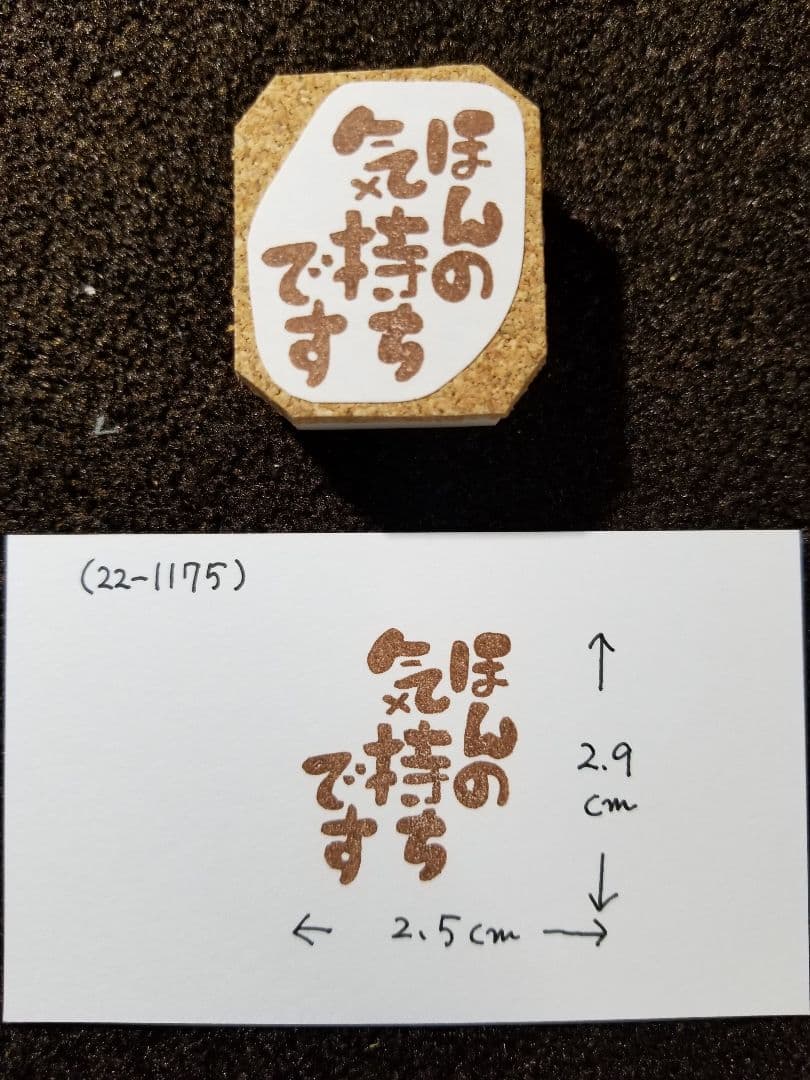 ほんの
気持ち
です
(22-1175)
ほんの
気持ち
です
2.9
cm
2.5cm